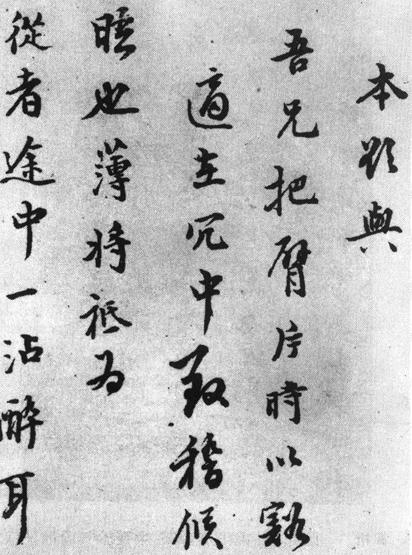 本欲與
吾兄把臂片時以豁
適在冗中致稽候
睡也薄將祗為
從者途中一沾醉耳